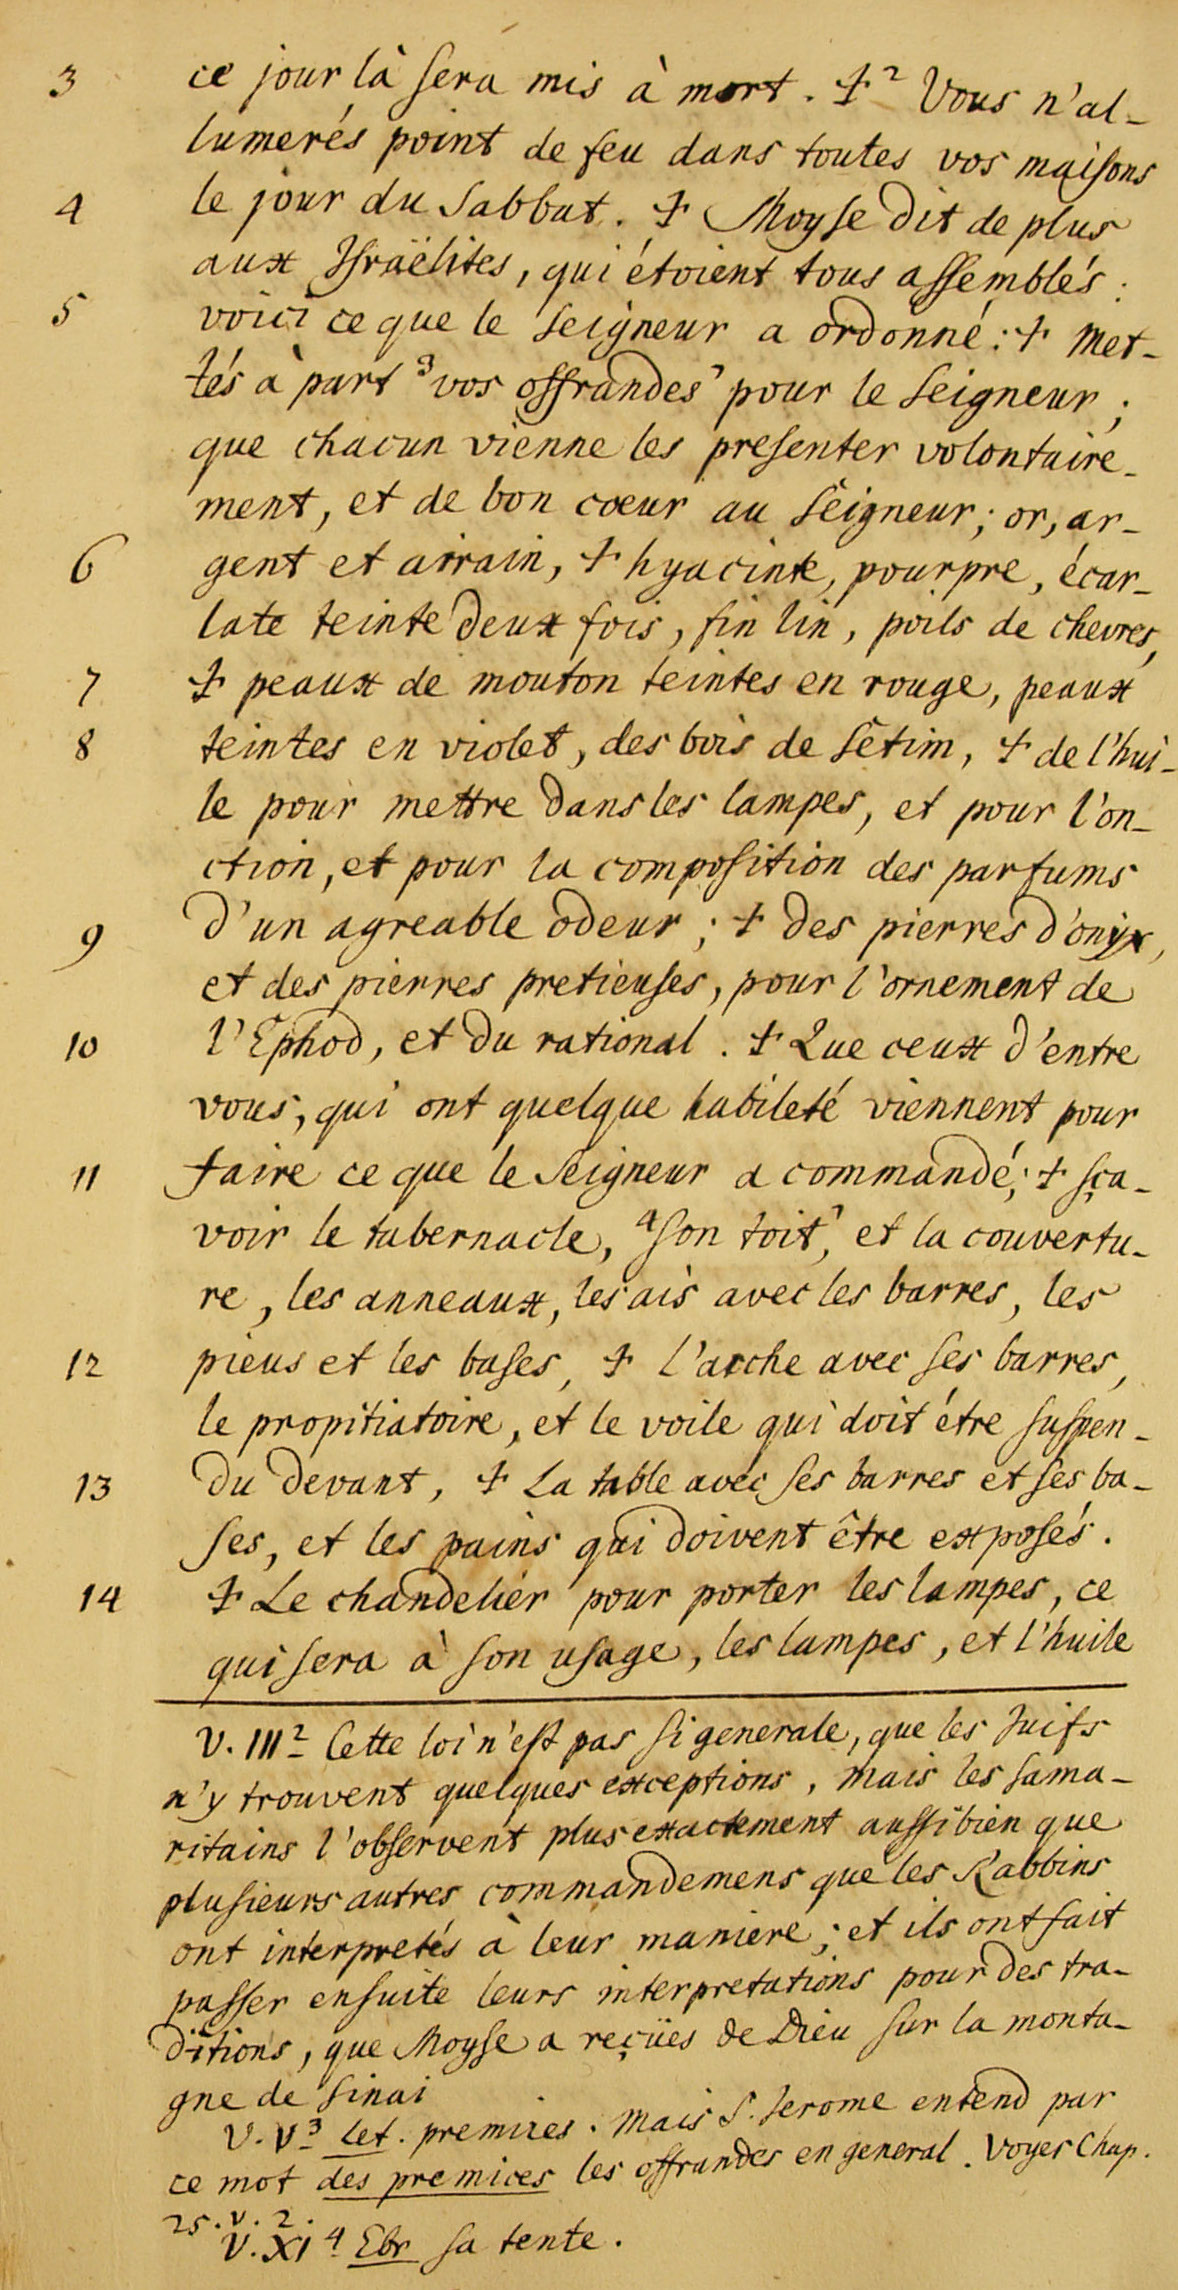 3 ce jour là sera mis à mort. ☩ ² Vous n'al-
lumerés point de feu dans toutes vos maisons
4 le jour du Sabbat. ☩ Moyse dit de plus
aux Israëlites, qui étoient tous assemblés:
5 voici ce que le seigneur a ordonné: ☩ Met-
tés à part ³ vos offrandes' pour le seigneur;
que chacun vienne les presenter volontaire-
ment, et de bon cœur au seigneur; or, ar-
6 gent et airain, ☩ hyacinte, pourpre, écar-
late teinte deux fois, fin lin, poils de chevres,
7 ☩ peaux de mouton teintes en rouge, peaux
8 teintes en violet, des bois de sétim, ☩ de l'hui-
le pour mettre dans les lampes, et pour l'on-
ction, et pour la composition des parfums
9 d'un agreable odeur; ☩ des pierres d'onyx,
et des pierres pretieuses, pour l'ornement de
10 l'Ephod, et du rational. ☩ Que ceux d'entre
vous, qui ont quelque habileté viennent pour
11 faire ce que le seigneur a commandé; ☩ sça-
voir le tabernacle, ⁴ son toit', et la couvertu-
re, les anneaux, les ais avec les barres, les
12 pieus et les bases, ☩ l'arche avec ses barres,
le propitiatoire, et le voile qui doit étre suspen-
13 du devant, ☩ La table avec ses barres et ses ba-
ses, et les pains qui doivent être exposés.
14 ☩ Le chandelier pour porter les lampes, ce
qui sera à son usage, les lampes, et l'huile
V. III ² Cette loi n'est pas si generale, que les Juifs
n'y trouvent quelques exceptions, mais les sama-
ritains l'observent plus exactement aussi bien que
plusieurs autres commandemens que les Rabbins
ont interpretés à leur maniere; et ils ont fait
passer ensuite leurs interpretations pour des tra-
ditions, que Moyse a reçües de Dieu sur la monta-
gne de sinai
V. V ³ Let. premices. mais S. Jerome entend par
ce mot des premices les offrandes en general. Voyes Chap.
25. v. 2.
V. XI ⁴ Ebr sa tente.